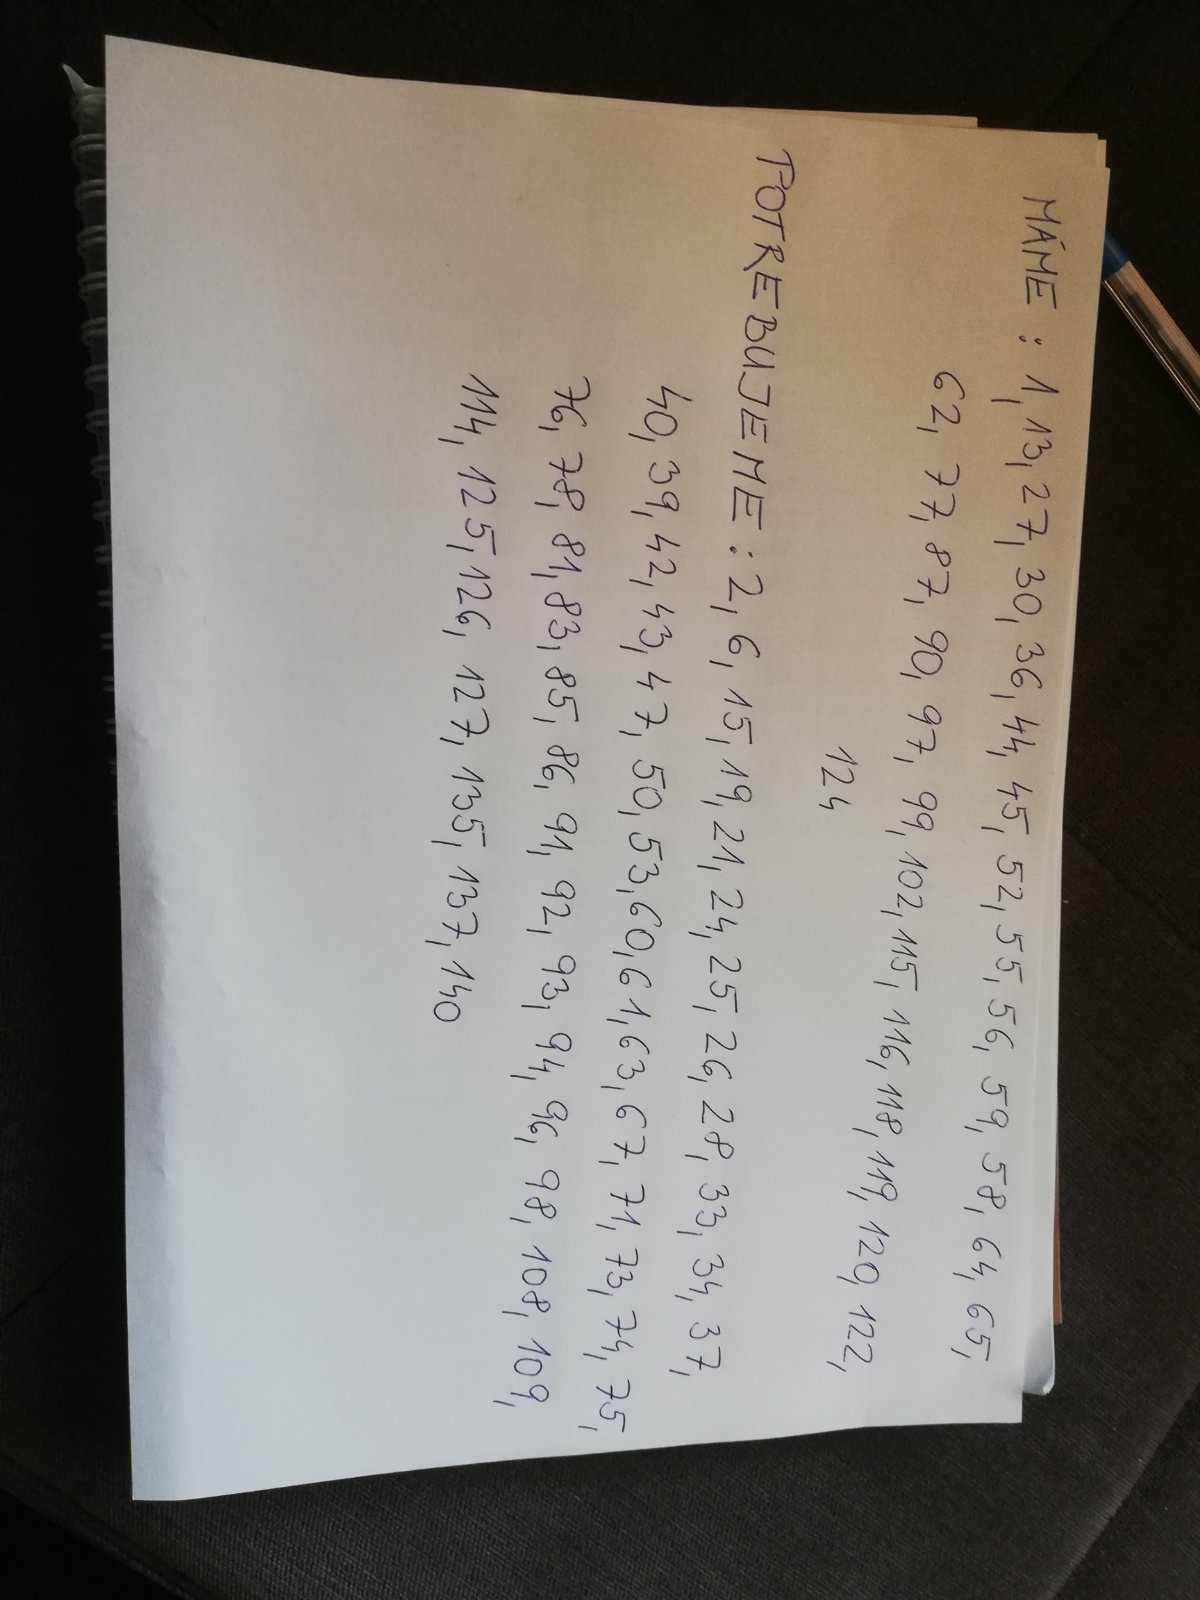 MÁME : 1, 13, 27, 30, 36, 44, 45, 52, 55, 56, 59, 58, 64, 65,
62, 77, 87, 90, 97, 99, 102, 115, 116, 118, 119, 120, 122,
124
POTREBUJEME : 2, 6, 15, 19, 21, 24, 25, 26, 28, 33, 34, 37,
40, 39, 42, 43, 47, 50, 53, 60, 61, 63, 67, 71, 73, 74, 75,
76, 78, 81, 83, 85, 86, 91, 92, 93, 94, 96, 98, 108, 109,
114, 125, 126, 127, 135, 137, 140